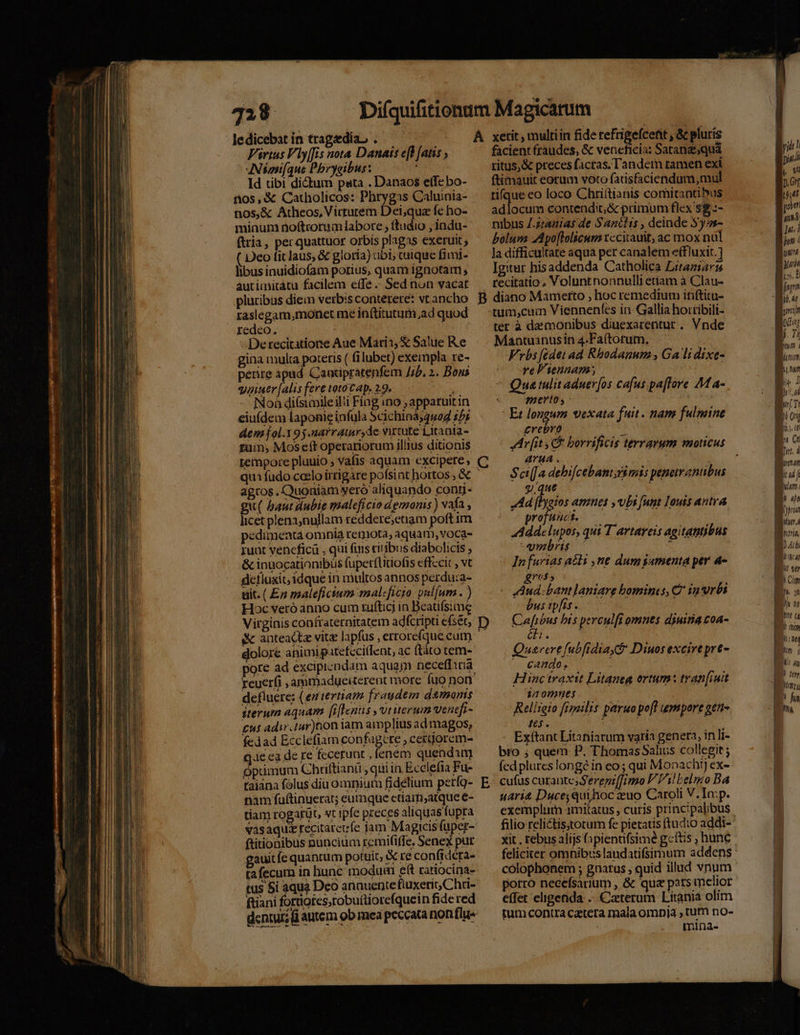 728 Disquisitionum Magicarum
le dicebat in tragœdia.
Virtus Vlyssis nota Danais est satis,
Nimisque Phrygibus:
Id tibi dictum puta. Danaos esse bo-
nos, & Catholicos: Phrygas Caluinia-
nos, & Atheos, Virtutem Dei, quæ se ho-
minum nostrorum labore, studio, indu-
stria, per quattuor orbis plagas exeruit,
( Deo sit laus, & gloria) ubi, cuique simi-
libus inuidiosam potius, quam ignotam,
aut imitatu facilem esse. Sed non vacat
pluribus diem verbis conterere: vt ancho
raslegam, monet me institutum, ad quod
redeo.
De recitatione Aue Maria, & Salue Re
gina multa poteris ( si lubet) exempla re-
petire apud Cantipratensem lib. 2. Boni
vniuersalis fere toto Cap. 29.
Non dissimile illi Fing ino, apparuit in
eiusdem Iaponie insula Scichina, quod ibi
dem fol. 195. narratur, de virtute Litania-
rum, Mos est operariorum illius ditionis
tempore pluuio, vasis aquam excipere,
qua sudo cœlo irrigare possint hortos, &
agros. Quoniam verò aliquando conti-
git ( haut dubie maleficio demonis ) vasa,
licet plena, nullam reddere, etiam post im
pedimenta omnia remota, aquam, voca-
runt veneficũ, qui suis ritibus diabolicis,
& inuocationibus superstitiosis effecit, vt
deflueret, idque in multos annos perdura-
uit. ( En maleficium maleficio pulsum. )
Hoc verò anno cum rustici in Beatissime
Virginis confraternitatem adscripti essét,
& anteactæ vitæ lapsus, erroresque cum
dolore animi patefecissent, ac stato tem-
pore ad excipiendam aquam necessariã
reuersi, animaduerterent more suo non
defluere: ( en tertiam fraudem dæmonis
iterum aquam sistentis, vt iterum venefi-
cus adiretur) non iam amplius ad magos,
sed ad Ecclesiam confugere, certiorem-
que ea de re fecerunt, senem quendam
optimum Christianũ, qui in Ecclesia Fu-
taiana solus diu omnium fidelium perso-
nam sustinuerat; eumque etiam, atque e-
tiam rogarũt, vt ipse preces aliquas supra
vasa quæ recitaret: se iam Magicis super-
stitionibus nuncium remisisse. Senex pur
gauit se quantum potuit, & re confidera-
ta secum in hunc modum est ratiocina-
tus Si aqua Deo annuente fluxerit, Chri-
stiani fortiores, robustioresque in fide red
dentur: si autem ob mea peccata non flu-
A xerit, multi in fide refrigescent, & pluris
facient fraudes, & veneficia: Satanæ, quã
ritus, & preces sacras. Tandem tamen exi
stimauit eorum voto satisfaciendum, mul
tisque eo loco Christianis comitantibus
ad locum contendit, & primum flexis ge-
nibus Litanias de Sanctis, deinde Sym-
bolum Apostolicum recitauit, ac mox nul
la difficultate aqua per canalem effluxit.]
Igitur his addenda Catholica Litaniaru
recitatio. Volunt nonnulli etiam à Clau-
B diano Mamerto, hoc remedium institu-
tum, cum Viennenses in Gallia horribili-
ter à dæmonibus diuexarentur. Vnde
Mantuanus in 4. Fastorum.
Vrbs sedet ad Rhodanum, Galli dixe-
re Viennam;
Quæ tulit aduersos casus pastore Ma-
merto,
Et longum vexata fuit. nam fulmine
crebro
Arsit, & horrificis terrarum moticus
C arua.
Scissa debiscebant, rimis penetrantibus
vsque
Ad stygios amnes, vbi sunt Iouis antra
profundi.
Adde lupos, qui Tartareis agitantibus
vmbris
In furias acti, ne dum jumenta per a-
gros,
Aud: bant laniare homines, & in vrbi
bus ipsis.
D Casibus his perculsi omnes diuina coa-
cti.
Quærere subsidia, & Diuos excire pre-
cando,
Hinc traxit Litanea ortum: transiuit
in omnes
Relligio similis paruo post tempore gen-
tes.
Exstant Litaniarum varia genera, in li-
bro, quem P. Thomas Salius collegit;
sed plures longè in eo; qui Monachij ex-
E cusus curante, Serenissimo VVilhelmo Ba
uariæ Duce, qui hoc æuo Caroli V. Imp.
exemplum imitatus, curis principalibus
filio relictis, totum se pietatis studio addi-
xit. rebus alijs sapientissimè gestis, hunc
feliciter omnibus laudatissimum addens
colophonem; gnarus, quid illud vnum
porro necessarium, & quæ pars melior
esset eligenda. Cæterum Litania olim
tum contra cætera mala omnia, tum no-
mina-